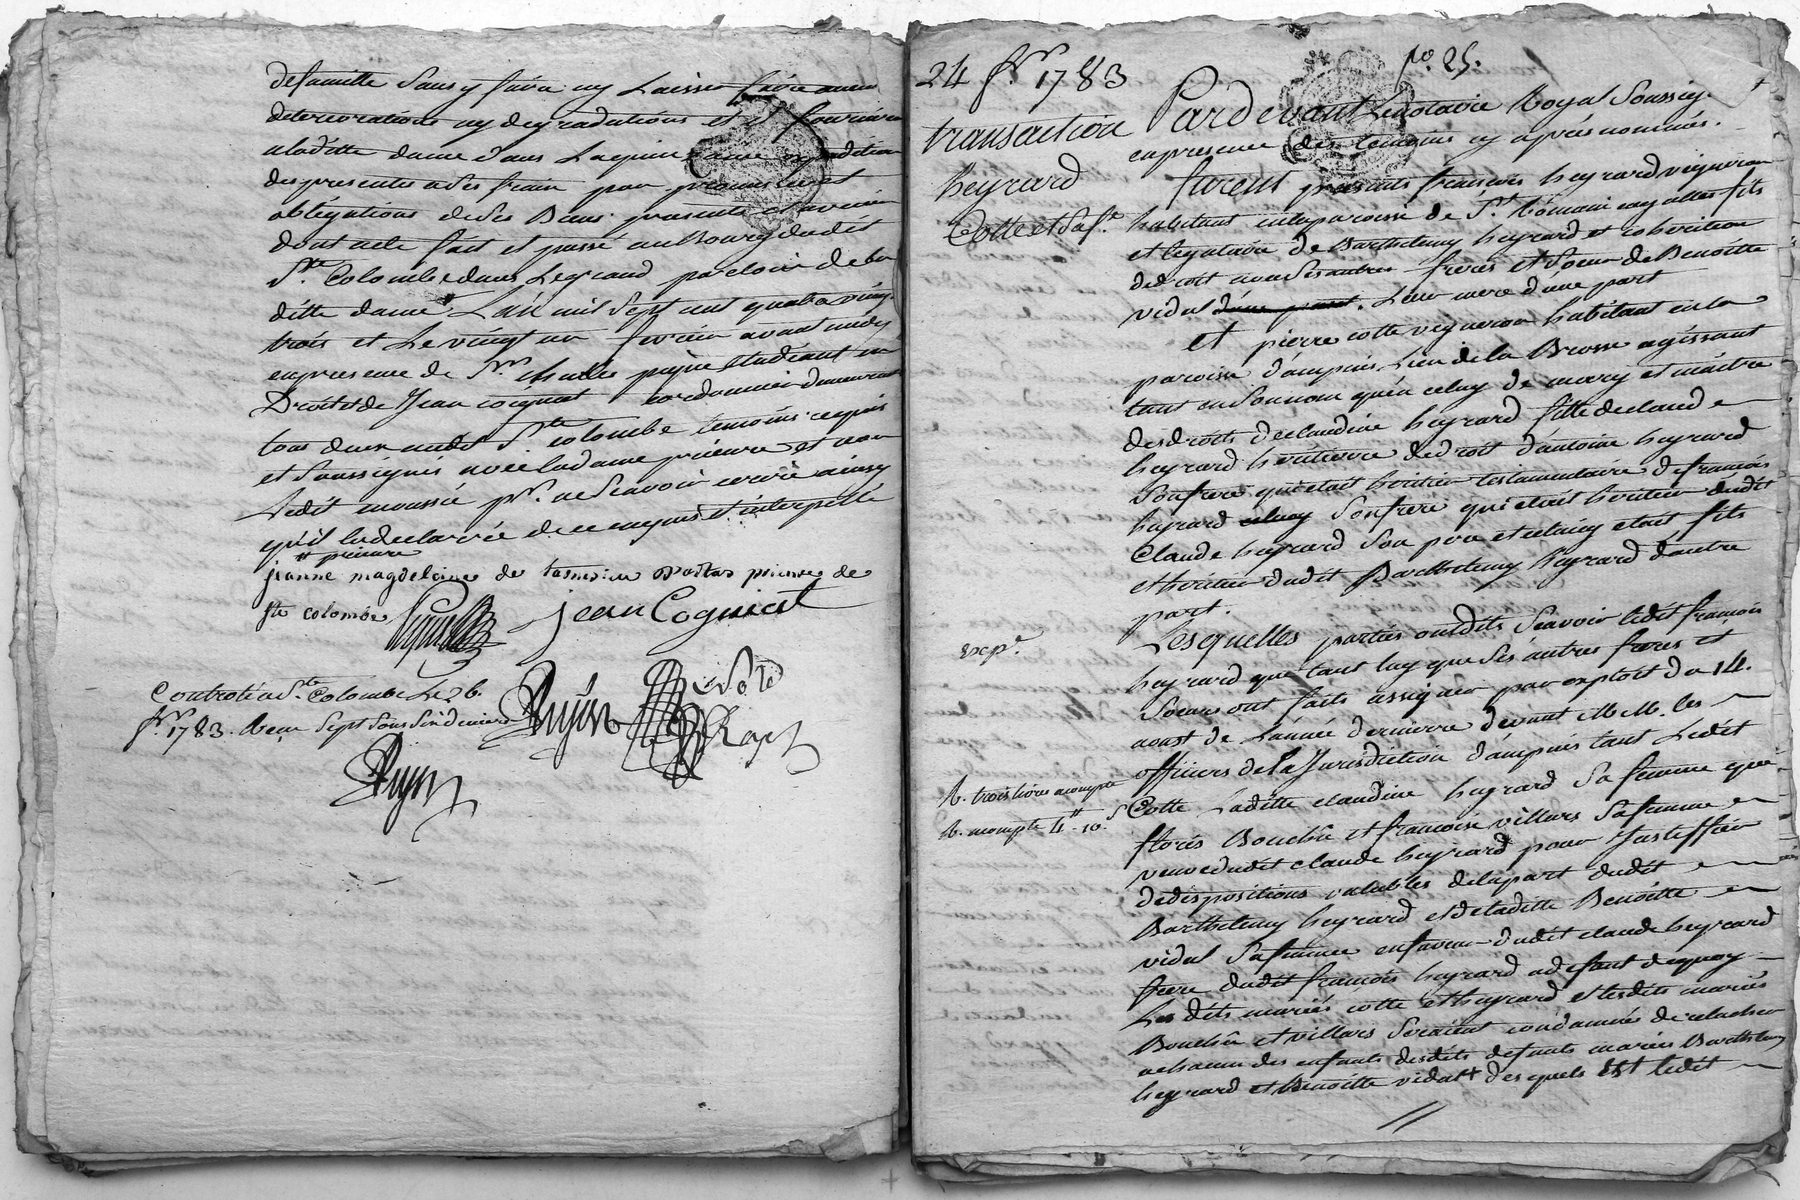 defamille Sans y faire ny Laisser faire aucune
deteriorations ny degradations et de fournir
a laditte dame dans Laquinzaine expedition
des presentes a Ses frais par promis et
obligations de Ses Biens presents et avenir
dont acte fait et passé au Bourg dudit
Ste Colombe dans Le grand parloir de la
ditte dame L'an mil Sept cent quatre vingt
trois et Le vingt un fevrier avant midy
en presence de Sr etudiant en
Droit et de Jean cogniat cordonnier demeurant
tous deux audit Ste colombe temoins requis
et Soussignés avec ladame prieure et non
Ledit pr. ne Scavoir ecrire ainsy
qu'il la declarée de ce enquis et interpellé
prieure
jeanne magdeleine de prieure de
ste colombe
jean Cogniat
Controlé a Ste Colombe Le 26
fr. 1783. Receu Sept Sous Six deniers
24 fr. 1783
no. 25.
transaction
heyrard
Cotte et Sa fe.
Pardevant Le Notaire Royal Soussigné
en presence des temoins cy après nommés.
furent presents françois heyrard vigneron
habitant en la paroisse de St Romain en galles fils
et legataire de Barthelemy heyrard et coheritier
de droit avec Ses autres freres et Soeur de Benoitte
vidal d'une part. Leur mere d'une part
et pierre cotte vigneron habitant en la
paroisse d'ampuis Lieu de la Brosse agissant
tant en Son nom qu'en celuy de mary et maitre
des droits de claudine heyrard fille de claude
heyrard heritiere de droit d'antoine heyrard
Son frere qui etait heritier testamentaire de francois
heyrard celuy Son frere qui etait heritier dudit
Claude heyrard Son pere et celuy etait fils
et heritier dudit Barthelemy heyrard d'autre
part.
Lesquelles parties ont dit Scavoir ledit francois
heyrard que tant luy que Ses autres freres et
Soeurs ont faits assigner par exploit du 14.
aoust de L'année derniere devant M M. les
officiers de la Jurisdiction d'ampuis tant Ledit
Cotte Laditte claudine heyrard Sa femme que
floris Bouchu et francoise villars Sa femme
veuve dudit claude heyrard pour Justiffier
de dispositions valables de la part dudit
Barthelemy heyrard et de laditte Benoitte
vidal Sa femme en faveur dudit claude heyrard
frere dudit francois heyrard a defaut de quoy
Les dits mariés cotte et heyrard et lesdits mariés
Bouchu et villars Seraient condamnés de relacher
a chacun des enfants desdits defunts mariés Barthelemy
heyrard et Benoitte vidal + desquels est ledit
Exp.e
R. trois livres acompte
R. acompte 4tt 10s